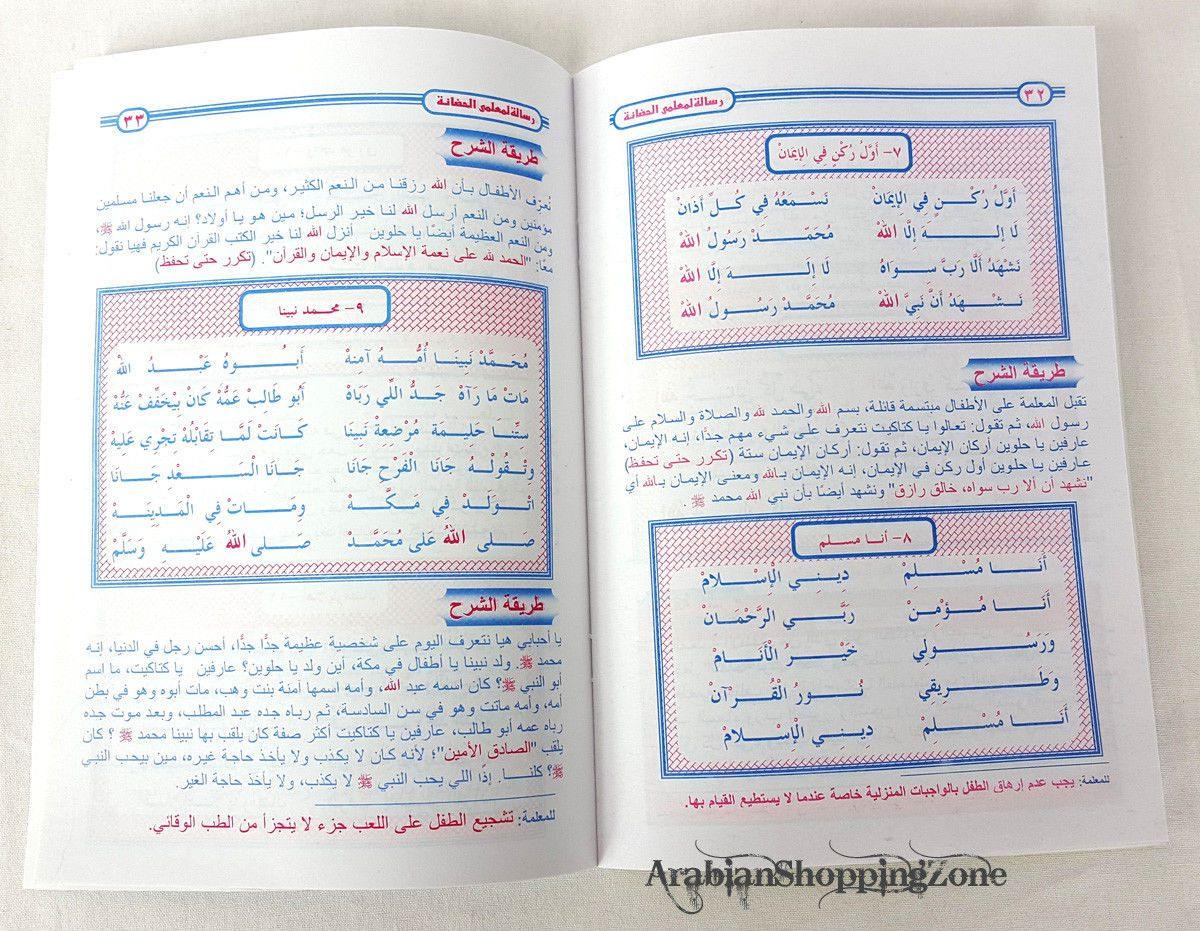 ٣٢
رسالة لمعلمى الحضانة
٧- أَوَّلُ رُكْنٍ فِي الإِيمَانْ
أَوَّلُ رُكْــنٍ فِي الإِيمَانْ نَسْمَعُهُ فِي كُلِّ أَذَانْ
لَا إِلــــــهَ إِلَّا اللهْ مُحَمَّــــدْ رَسُولُ اللهْ
نَشْهَدُ أَلَّا رَبَّ سِــــوَاهْ لَا إِلَــــــهَ إِلَّا اللهْ
نَــشْــهَدُ أَنَّ نَبِيَّ اللهْ مُحَمَّدْ رَسُـــولُ اللهْ
طريقة الشرح
تقبل المعلمة على الأطفال مبتسمة قائلة، بسم الله والحمد لله والصلاة والسلام على
رسول الله، ثم تقول: تعالوا يا كتاكيت نتعرف على شيء مهم جدًّا، إنه الإيمان،
عارفين يا حلوين أركان الإيمان، ثم تقول: أركان الإيمان ستة (تكرر حتى تحفظ)
عارفين يا حلوين أول ركن في الإيمان، إنه الإيمان بـالله ومعنى الإيمان بـالله أي
"نشهد أن ألا رب سواه، خالق رازق" ونشهد أيضًا بأن نبي الله محمد ﷺ .
٨- أنــا مسـلم
أَنَــــا مُسْــــلِمْ دِيـنِـي الْإِسْــــلامْ
أَنَــــا مُــــؤْمِنْ رَبِّـي الرَّحْمَـانْ
وَرَسُــــــــولِي خَيْــــرُ الْأَنَــــامْ
وَطَــــــــرِيقِي نُــــورُ الْقُــــرْآنْ
أَنَــــا مُسْــــلِمْ دِينِـي الْإِسْــــلامْ
للمعلمة: يجب عدم إرهاق الطفل بالواجبات المنزلية خاصة عندما لا يستطيع القيام بها.
رسالة لمعلمى الحضانة
٣٣
طريقة الشرح
نُعرّف الأطفال بـأن الله رزقنا من النعم الكثير، ومن أهم النعم أن جعلنا مسلمين
مؤمنين ومن النعم أرسل الله لنا خير الرسل؛ مين هو يا أولاد؟ انه رسول الله ﷺ،
ومن النعم العظيمة أيضًا يا حلوين أنزل الله لنا خير الكتب القرآن الكريم فهيا نقول
معًا: "الحمد لله على نعمة الإسلام والإيمان والقرآن". (تكرر حتى تحفظ)
٩- محمـد نبينا
مُحَـمَّدْ نَبِينَـا أُمُّــــهُ آمِنِهْ أَبُــــوهُ عَبْــــدُ اللهْ
مَاتْ مَا رَآهْ جَــدُّ اللِّي رَبَّاهْ أَبُو طَالِبْ عَمُّهْ كَانْ بِيْخَفِّفْ عَنُّهْ
سِتِّنَـا حَلِيـمَة مُرْضِعِةْ نَبِينَا كَـانَتْ لَمَّـا تِقَابْلُهْ تِجْرِي عَلِيهْ
وِتْقُولُــهْ جَانَا الْفَرْحِ جَانَا جَـانَا الْسَّــــعْدِ جَــانَا
اتْـوَلَـدْ فِي مَـكَّــــهْ وِمَــاتْ فِي الْمَدِينَــهْ
صَـلى اللهُ عَلَى مُحَمَّـدْ صَـلى اللهُ عَلَيْــهِ وَسَلَّمْ
طريقة الشرح
يا أحبابي هيا نتعرف اليوم على شخصية عظيمة جدًّا جدًّا، أحسن رجل في الدنيا، إنـه
محمد ﷺ. ولد نبينا يا أطفال في مكة، أين ولد يا حلوين؟ عارفين يا كتاكيت، ما اسم
أبو النبي ﷺ؟ كان اسمه عبد الله، وأمه اسمها آمنة بنت وهب، مات أبوه وهو في بطن
أمه، وأمه ماتت وهو في سن السادسة، ثم رباه جده عبد المطلب، وبعد موت جده
رباه عمه أبو طالب، عارفين يا كتاكيت أكثر صفة كان يلقب بها نبينا محمد ﷺ ؟ كان
يلقب "الصادق الأمين"؛ لأنه كان لا يكذب ولا يأخذ حاجة غيره، مين بيحب النبي
ﷺ؟ كلنــا. إذًا اللي يحب النبي ﷺ لا يكذب، ولا يأخذ حاجة الغير.
للمعلمة: تشجيع الطفل على اللعب جزء لا يتجزأ من الطب الوقائي.
ArabianShoppingZone